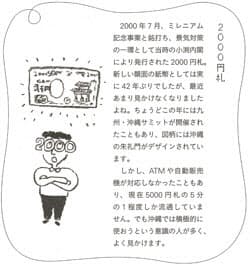 2000円札
2000年7月、ミレニアム
記念事業と銘打ち、景気対策
の一環として当時の小渕内閣
により発行された2000円札。
新しい額面の紙幣としては実
に42年ぶりでしたが、最近
あまり見かけなくなりました
よね。ちょうどこの年には九
州・沖縄サミットが開催され
たこともあり、図柄には沖縄
の朱礼門がデザインされてい
ます。
しかし、ATMや自動販売
機が対応しなかったこともあ
り、現在5000円札の5分
の1程度しか流通していませ
ん。でも沖縄では積極的に
使おうという意識の人が多く、
よく見かけます。
2000